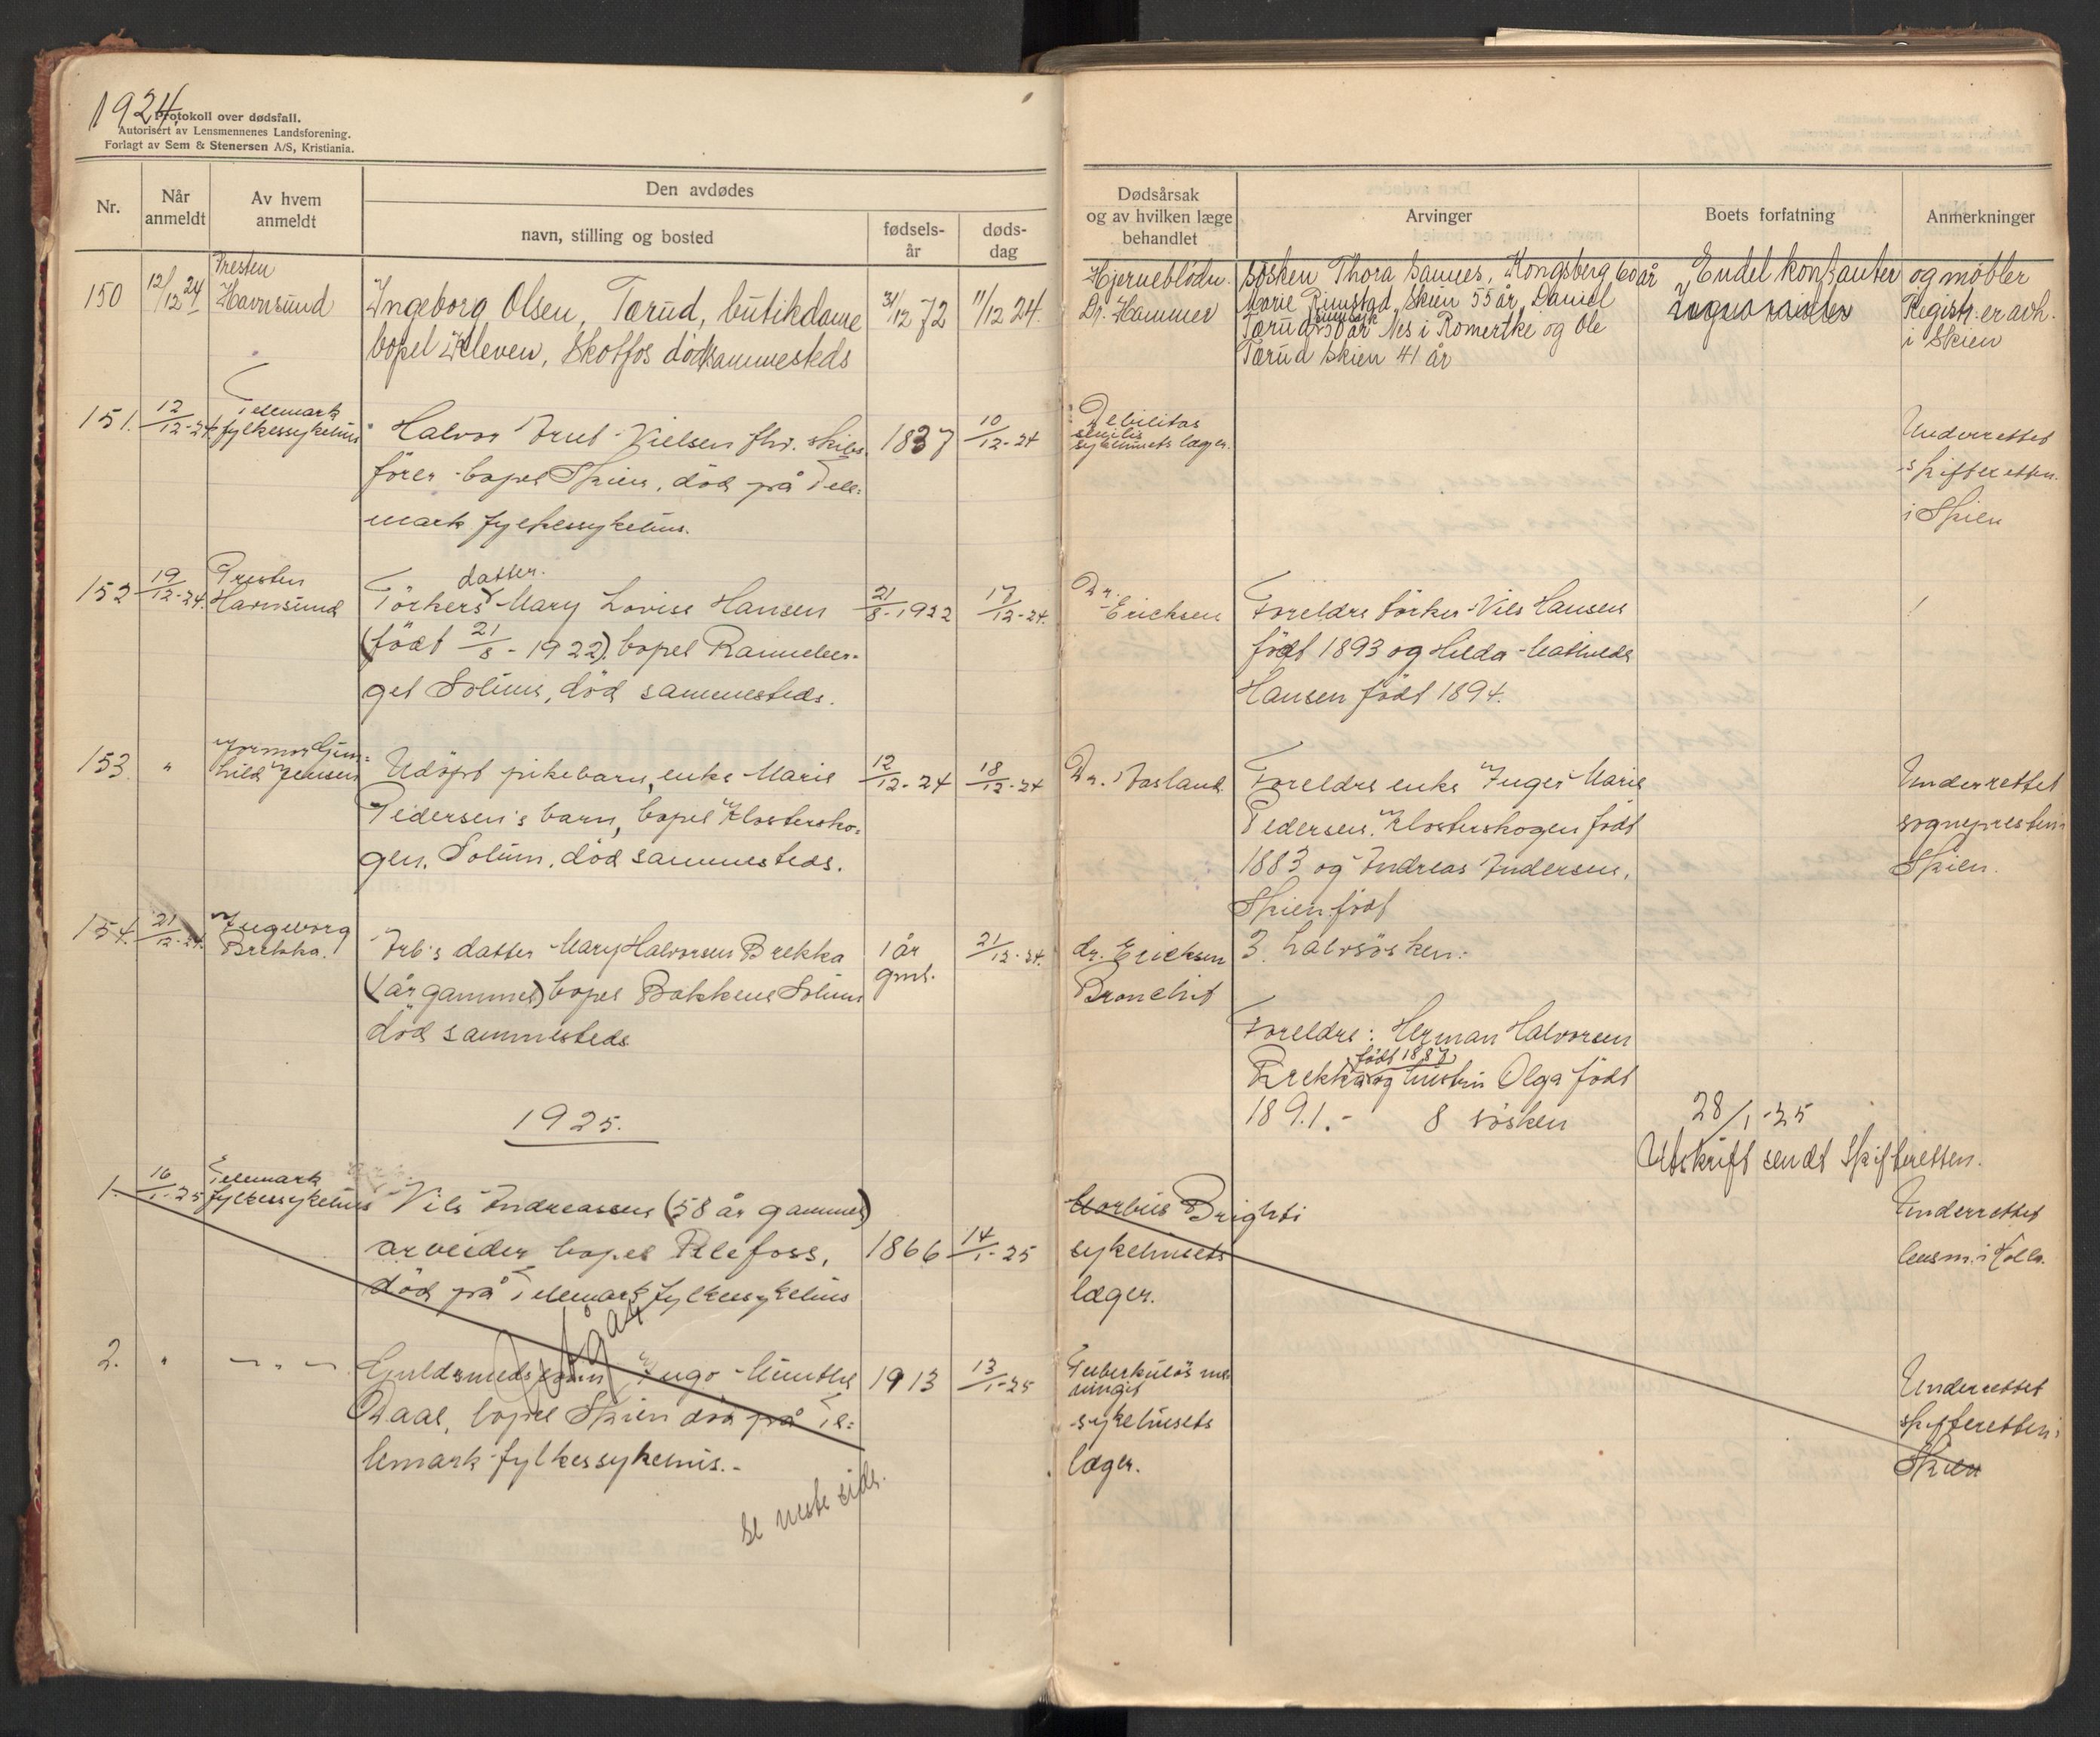 1924.
Protokoll over dødsfall.
Autorisert av Lensmennenes Landsforening.
Forlagt av Sem & Stenersen A/S, Kristiania.
Nr.
Når anmeldt
Av hvem anmeldt
Den avdødes
navn, stilling og bosted
fødsels-år
døds-dag
Dødsårsak og av hvilken læge behandlet
Arvinger
Boets forfatning
Anmerkninger
150 12/12 24 Presten Havnsund
Ingeborg Olsen, Tærud, butikdame
bopel Kleven, Skotfos død sammesteds
31/12 72
11/12 24.
Hjerneblødn.
Dr. Hammer
Søsken Thora Sannes, Kongsberg 60 år
Marie Rimstad, Skien 55 år, Daniel
Tærud 50 år Nes i Romerike og Ole
Tærud Skien 41 år
Endel kontanter og møbler
Registr. er avh.
i Skien
151. 12/12-24 Telemark fylkessykehus
Halvor Nielsen fhv. skibs
fører bopel Skien, død på Tele=
mark fylkessykehus.
1837
10/12-24
Debilitas
senilis
sykehusets læger.
Underrettet
skifteretten
i Skien
152 19/12-24. Presten Havnsund
datter.
Törkers Mary Lovise Hansen
(født 21/8-1922) bopel Rauneber-
get Solum, död sammesteds.
21/8-1922
17/12-24.
Dr.
Erichsen
Foreldre törker Nils Hansen
født 1893 og Hilda Mathilde
Hansen født 1894.
153. " Jormor Gun=
hild Jensen
Udöpt pikebarn, enke Marie
Pedersen's barn, bopel Klostersko=
gen. Solum, död sammesteds.
12/12-24
18/12-24
Dr. Aasland
Foreldre enke Inger Marie
Pedersen, Klosterskogen født
1883 og Andreas Andersen,
Skien født
3 halvsösken.
Underrettet
sognepresten i
Skien.
154. 21/12-24. Ingeborg
Brekka.
Arb's datter Mary Halvorsen Brekka
(1 år gammel) bopel Bakkene Solum
död sammesteds
1 år
gml.
21/12-24.
dr. Erichsen
Bronchit
Foreldre: Herman Halvorsen
født 1887
Brekka og hustru Olga født
1891.- 8 søsken
1925.
28/1-25
Utskrift sendt Skifteretten.
1. 16/1-25 Telemark fylkessykehus
Nils Andreassen (58 år gammel)
arbeider, bopel Ulefoss,
död på Telemark fylkessykehus
1866
14/1-25
Morbus Brighti
sykehusets
læger.
Underrettet
lensm. i Holla.
Utgår
2. " - " -
Guldsmedsønn Ingo Munthe
Daal, bopel Skien död på Te=
lemark fylkessykehus.-
1913
13/1-25
Tuberkuløs me
ningit
sykehusets
læger.
Underrettet
skifteretten i
Skien
Se neste side.